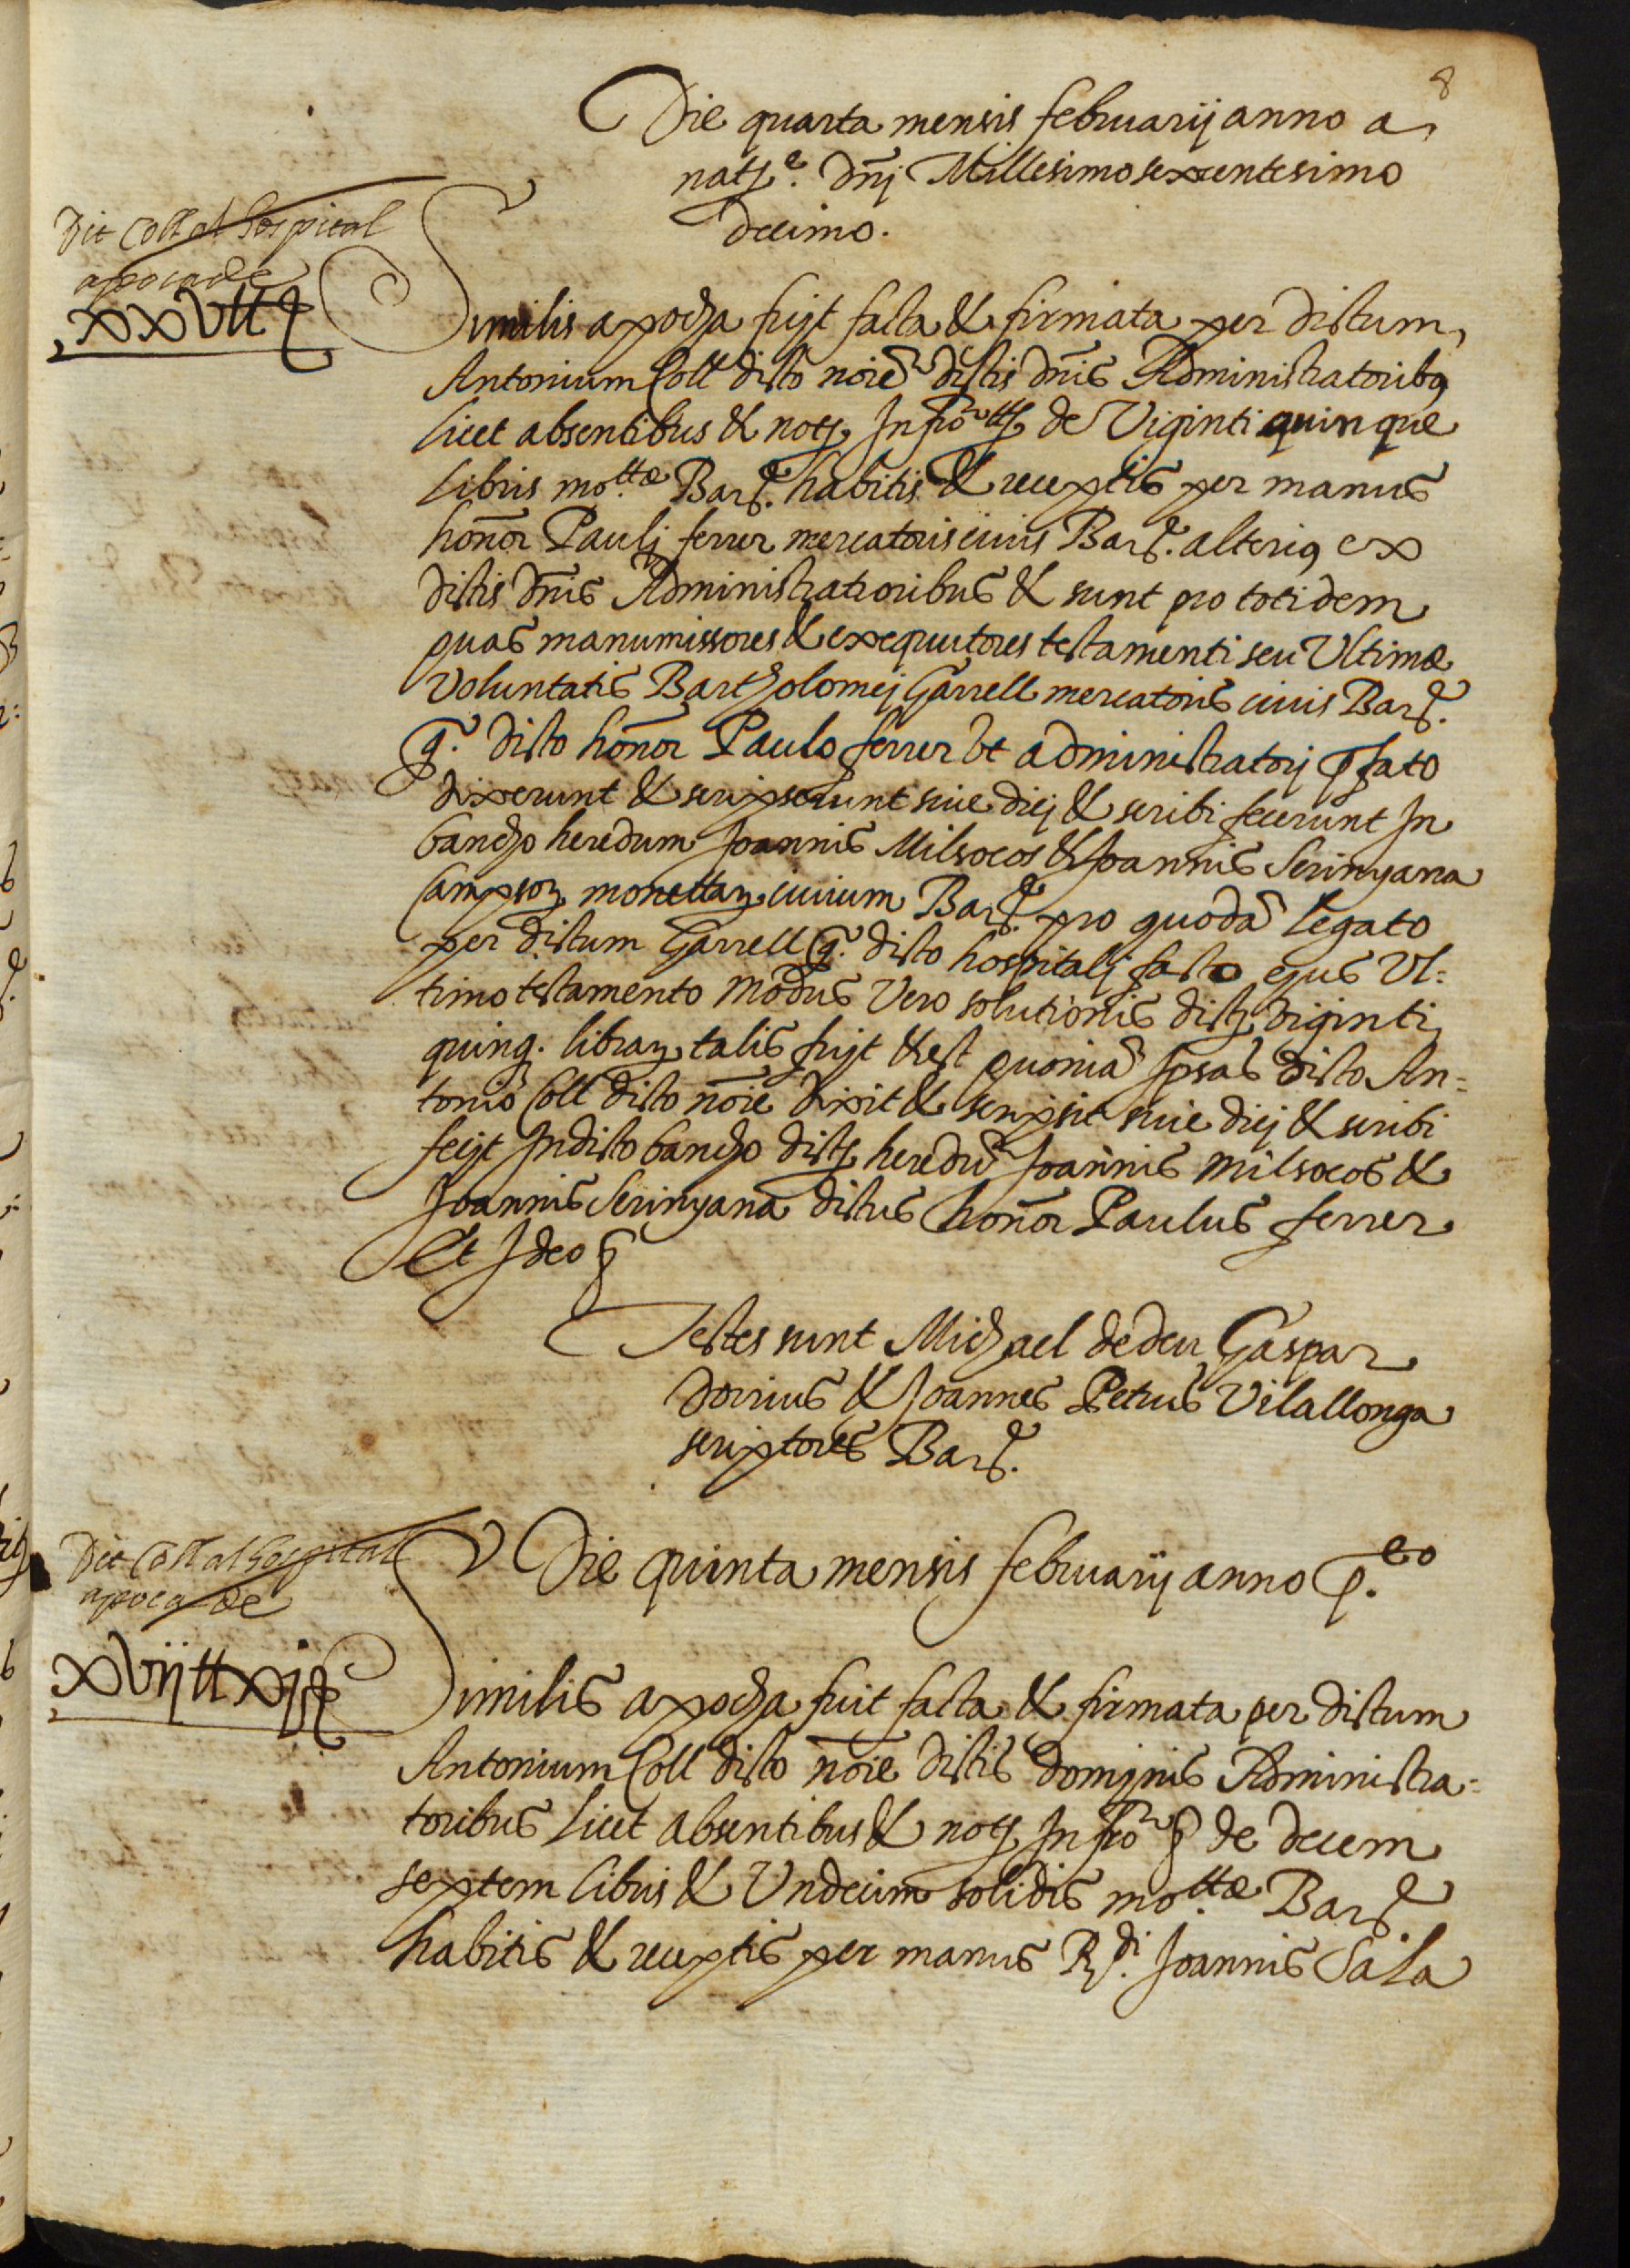 8
Die quarta mensis februarij anno a
nat.e Dnj Millesimo sexcentesimo
decimo.
Dit Coll al hospital
apoca de
xxv ll
Similis apocha fuyt facta & firmata per dictum
Antonium Coll dicto noie dictis dnis Administratoribus
licet absentibus & not. Infro de Viginti quinque
libris mo.tæ Bar.e habitis & receptis per manus
honor Paulj ferrer mercatoris civis Bar.e alterius ex
dictis dnis Administratioribus & sunt pro totidem
quas manumissores & exequutores testamenti seu Ultimæ
voluntatis Bartholomej Garrell mercatoris civis Bar.e
q. dicto honor Paulo ferrer vt administratorj pfato
dixerunt & scripserunt sive diej & scribi fecerunt In
bancho heredum Joannis Milsocos & Joannis Serinyana
Campsor monettar civium Bar.e pro quodã legato
per dictum Garrell q. dicto hospitalj facto ejus Vl:
timo testamento Modus Vero solutionis dict. viginti
quinq. librar talis fuyt & est quoniã Ipsas dicto An=
tonio Coll dicto noie dixit & scripsit sive diej & scribi
fecyt In dicto bancho dict. heredu Joannis Milsocos &
Joannis Serinyana dictus honor Paulus ferrer
Et Ideo
Testes sunt Michael dedeu Gaspar
Dorius & Joannes Petrus Vilallonga
scriptores Bar.e
Dit Coll al hospital
apoca de
xvij ll xj
Die quinta mensis februarij anno p.eo
Similis apocha fuit facta & firmata per dictum
Antonium Coll dicto noie dictis dominis Administra=
toribus licet absentibus & not. Infro de decem
septem libris & Undecim solidis mo.tæ Bar.e
habitis & receptis per manus R.di Joannis Sala